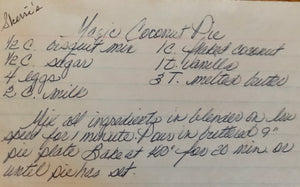 Sherri's
Magic Coconut Pie
1/2 C. bisquit mix 1 C. flaked coconut
1/2 C. sugar 1 t. vanilla
4 eggs 3 T. melted butter
2 C. milk
Mix all ingredients in blender on low
speed for 1 minute. Pour in buttered 9"
pie plate Bake at 400° for 20 min or
until pie has set.